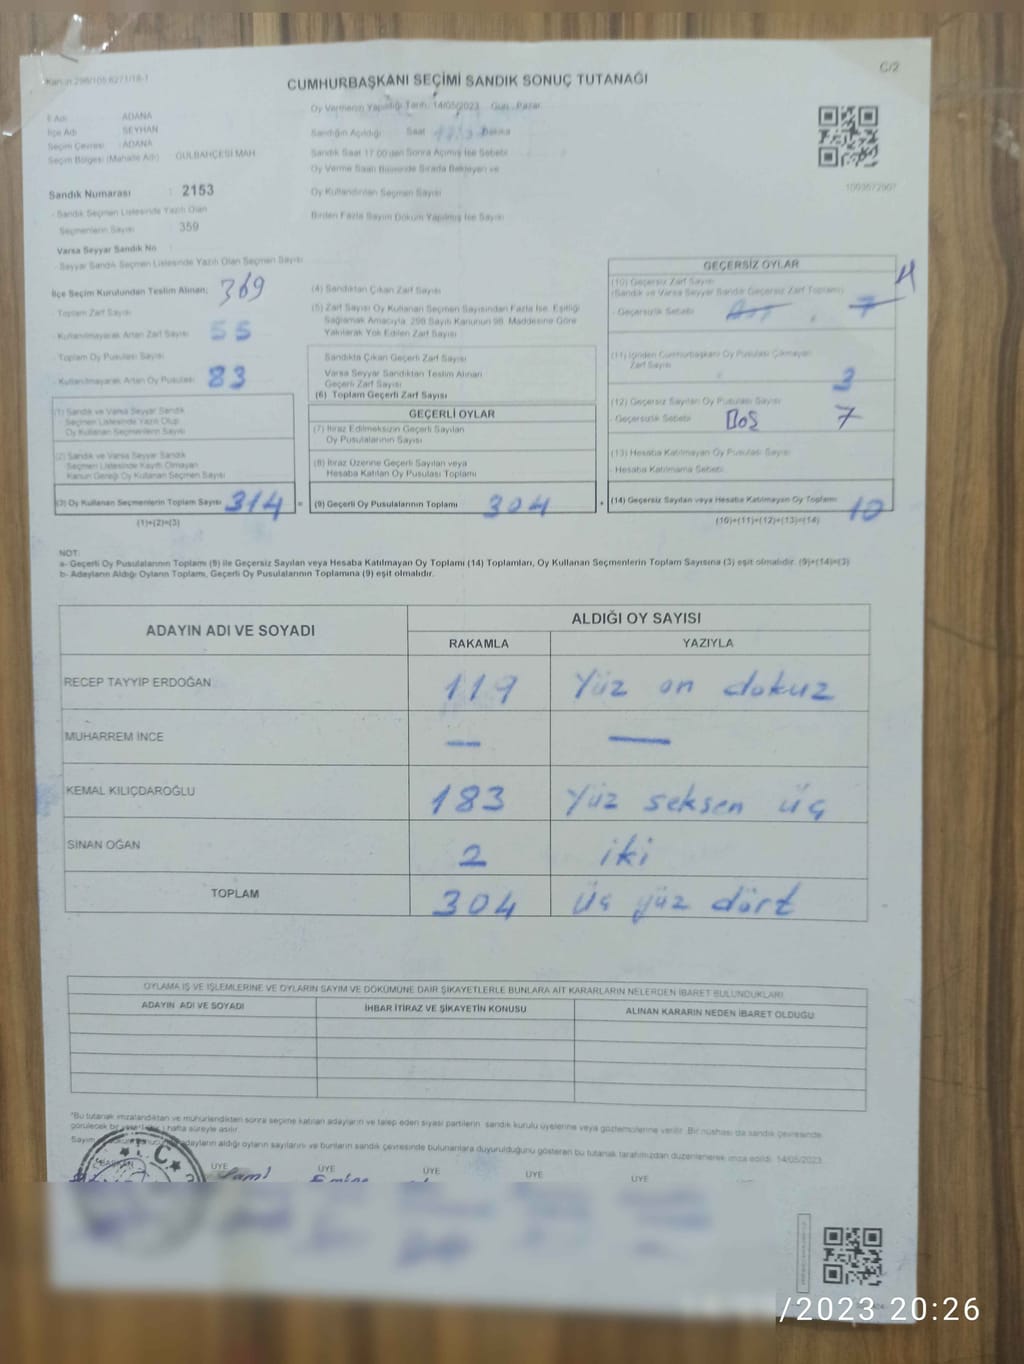 Kanun 298/105 6271/18-1
C/2
CUMHURBAŞKANI SEÇİMİ SANDIK SONUÇ TUTANAĞI
İl Adı : ADANA
İlçe Adı : SEYHAN
Seçim Çevresi : ADANA
Seçim Bölgesi (Mahalle Adı) : GÜLBAHÇESİ MAH.
Sandık Numarası : 2153
- Sandık Seçmen Listesinde Yazılı Olan
Seçmenlerin Sayısı : 359
Varsa Seyyar Sandık No
- Seyyar Sandık Seçmen Listesinde Yazılı Olan Seçmen Sayısı
İlçe Seçim Kurulundan Teslim Alınan;
- Toplam Zarf Sayısı 369
- Kullanılmayarak Artan Zarf Sayısı 55
- Toplam Oy Pusulası Sayısı
- Kullanılmayarak Artan Oy Pusulası 83
(1) Sandık ve Varsa Seyyar Sandık
Seçmen Listesinde Yazılı Olup
Oy Kullanan Seçmenlerin Sayısı
(2) Sandık ve Varsa Seyyar Sandık
Seçmen Listesinde Kayıtlı Olmayan
Kanun Gereği Oy Kullanan Seçmen Sayısı
(3) Oy Kullanan Seçmenlerin Toplam Sayısı 314 =
(1)+(2)=(3)
Oy Vermenin Yapıldığı Tarih: 14/05/2023 Gün : Pazar
Sandığın Açıldığı Saat Dakika
Sandık Saat 17:00'den Sonra Açılmış İse Sebebi
Oy Verme Saati Bitiminde Sırada Bekleyen ve
Oy Kullandırılan Seçmen Sayısı
Birden Fazla Sayım Döküm Yapılmış İse Sayısı
1003672907
(4) Sandıktan Çıkan Zarf Sayısı
(5) Zarf Sayısı Oy Kullanan Seçmen Sayısından Fazla İse, Eşitliği
Sağlamak Amacıyla 298 Sayılı Kanunun 98. Maddesine Göre
Yakılarak Yok Edilen Zarf Sayısı
Sandıkta Çıkan Geçerli Zarf Sayısı
Varsa Seyyar Sandıktan Teslim Alınan
Geçerli Zarf Sayısı
(6) Toplam Geçerli Zarf Sayısı
GEÇERLİ OYLAR
(7) İtiraz Edilmeksizin Geçerli Sayılan
Oy Pusulalarının Sayısı
(8) İtiraz Üzerine Geçerli Sayılan veya
Hesaba Katılan Oy Pusulası Toplamı
(9) Geçerli Oy Pusulalarının Toplamı 304 +
GEÇERSİZ OYLAR
(10) Geçersiz Zarf Sayısı
(Sandık ve Varsa Seyyar Sandık Geçersiz Zarf Toplamı)
- Geçersizlik Sebebi 7
(11) İçinden Cumhurbaşkanı Oy Pusulası Çıkmayan
Zarf Sayısı 3
(12) Geçersiz Sayılan Oy Pusulası Sayısı
- Geçersizlik Sebebi BOŞ 7
(13) Hesaba Katılmayan Oy Pusulası Sayısı
Hesaba Katılmama Sebebi
(14) Geçersiz Sayılan veya Hesaba Katılmayan Oy Toplamı 10
(10)+(11)+(12)+(13)=(14)
NOT:
a- Geçerli Oy Pusulalarının Toplamı (9) ile Geçersiz Sayılan veya Hesaba Katılmayan Oy Toplamı (14) Toplamları, Oy Kullanan Seçmenlerin Toplam Sayısına (3) eşit olmalıdır. (9)+(14)=(3)
b- Adayların Aldığı Oyların Toplamı, Geçerli Oy Pusulalarının Toplamına (9) eşit olmalıdır.
ADAYIN ADI VE SOYADI ALDIĞI OY SAYISI
RAKAMLA YAZIYLA
RECEP TAYYİP ERDOĞAN 119 Yüz on dokuz
MUHARREM İNCE — —
KEMAL KILIÇDAROĞLU 183 Yüz seksen üç
SİNAN OĞAN 2 iki
TOPLAM 304 üç yüz dört
OYLAMA İŞ VE İŞLEMLERİNE VE OYLARIN SAYIM VE DÖKÜMÜNE DAİR ŞİKAYETLERLE BUNLARA AİT KARARLARIN NELERDEN İBARET BULUNDUKLARI
ADAYIN ADI VE SOYADI İHBAR İTİRAZ VE ŞİKAYETİN KONUSU ALINAN KARARIN NEDEN İBARET OLDUĞU
*Bu tutanak imzalandıktan ve mühürlendikten sonra seçime katılan adayların ve talep eden siyasi partilerin sandık kurulu üyelerine veya gözlemcilerine verilir. Bir nüshası da sandık çevresinde
görülecek bir yere bir hafta süreyle asılır.
Sayım adayların aldığı oyların sayılarını ve bunların sandık çevresinde bulunanlara duyurulduğunu gösteren bu tutanak tarafımızdan düzenlenerek imza edildi. 14/05/2023
T.C.
BAŞKAN ÜYE ÜYE ÜYE ÜYE ÜYE
/2023 20:26